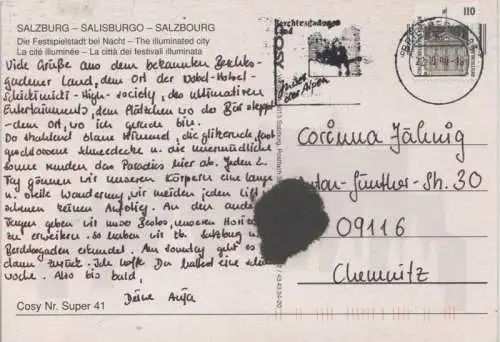 SALZBURG – SALISBURGO – SALZBOURG
Die Festspielstadt bei Nacht – The illuminated city
La cité illuminée – La città dei festivali illuminata
Viele Grüße aus dem bekannten Berchtes-
gadener Land, dem Ort der Nobel-Hotel-
Schickimicki-High-society, des ultimativen
Entertainments, dem Plätzchen wo der Bär steppt
- dem Ort, wo ich gerade bin.
Der strahlend blaue Himmel, die glitzernde, fast
geschlossene Schneedecke u. die unermüdliche
Sonne runden das Paradies hier ab. Jeden 2.
Tag gönnen wir unseren Körpern eine lange
u. steile Wanderung, wir meiden jeden Lift u.
scheuen keinen Aufstieg. An den anderen
Tagen geben wir unser Bestes, unseren Horizont
zu erweitern. So haben wir schon Salzburg u.
Berchtesgaden erkundet. Am Sonntag geht es
dann zurück. Ich hoffe Du hattest eine schöne
Woche. Also bis bald,
Deine Anja
Cosy Nr. Super 41
COSY
Berchtesgadener
Land
unter
den Alpen
110
Corinna Jähnig
Anton-Günther-Str. 30
09116
Chemnitz